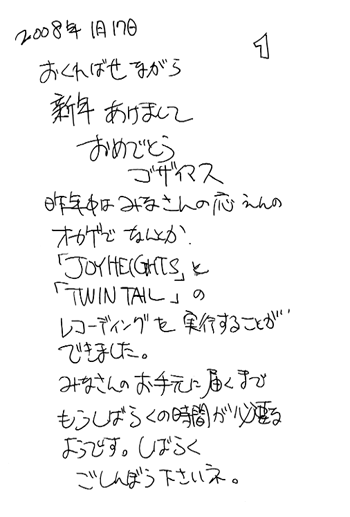 2008年 1月17日
1
おくればせながら
新年 あけまして
おめでとう
ゴザイマス
昨年中はみなさんの応えんの
オカゲで なんとか、
「JOYHEIGHTS」と
「TWIN TAIL」の
レコーディングを実行することが
できました。
みなさんのお手元に届くまで
もうしばらくの時間が必要な
ようです。しばらく
ごしんぼう下さいネ。